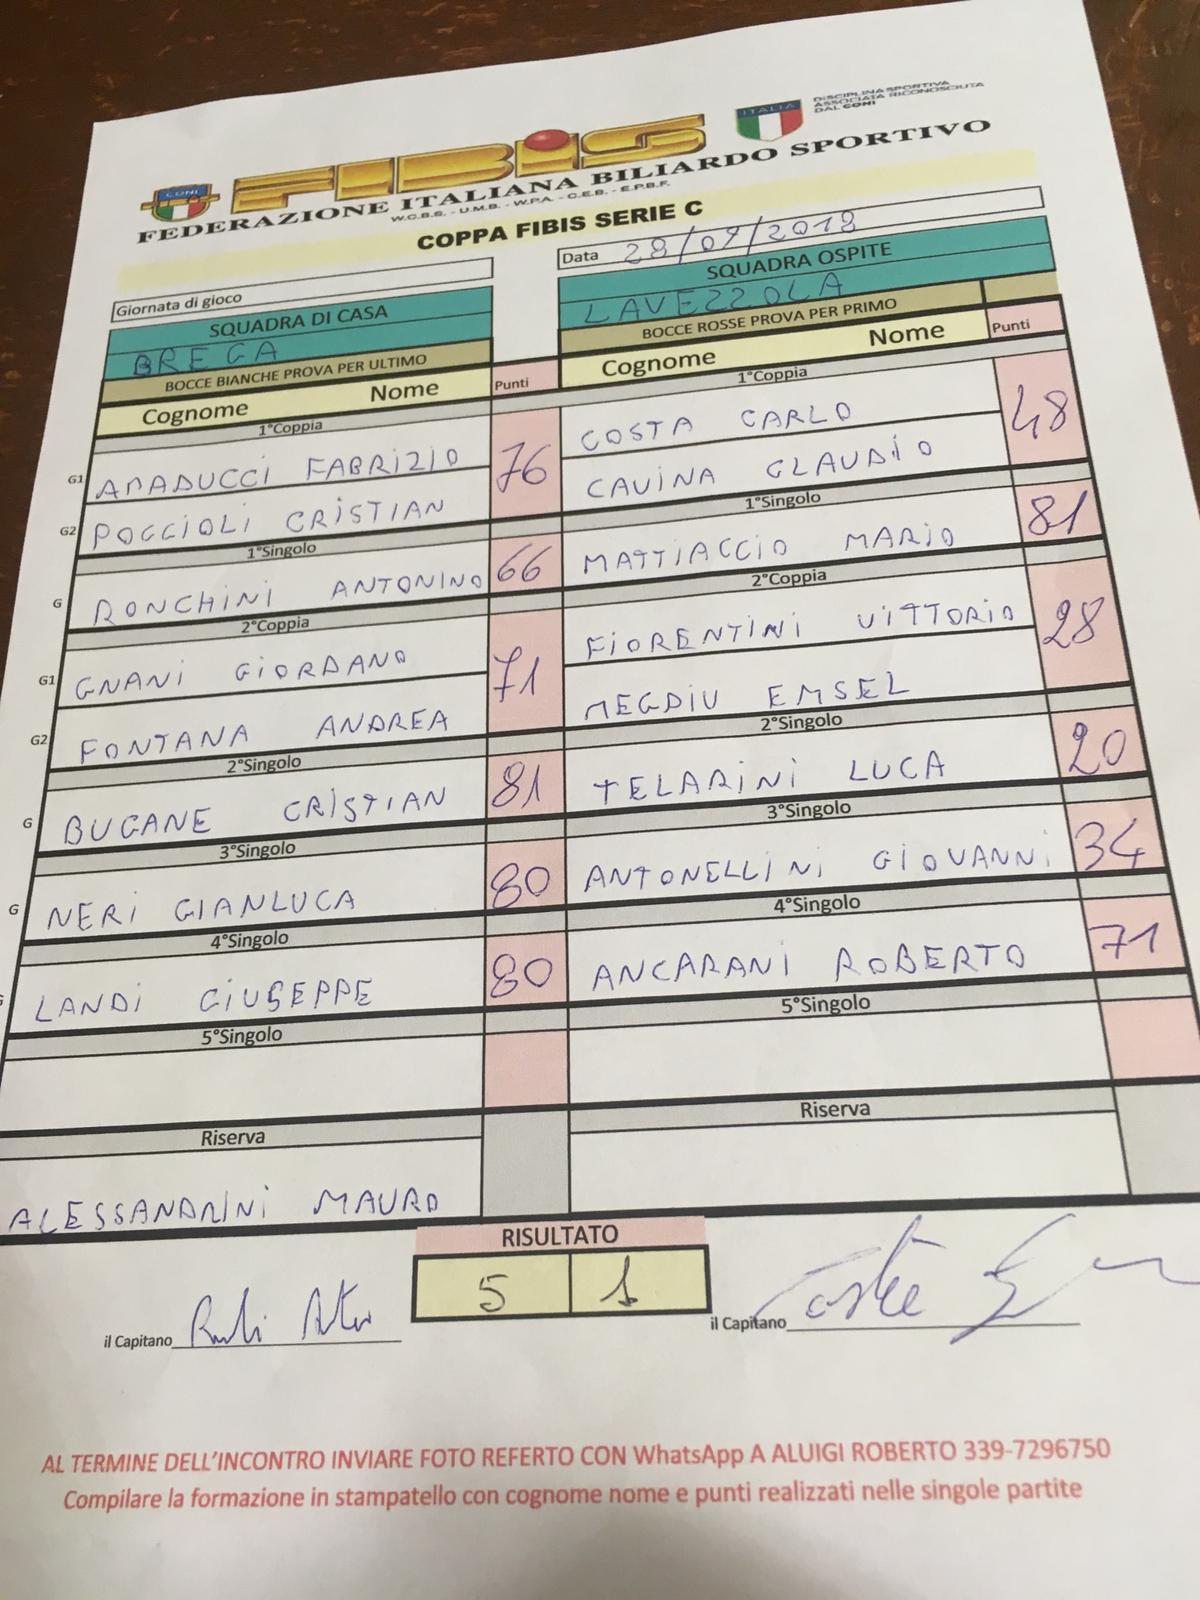 CONI
FIBiS
ITALIA
DISCIPLINA SPORTIVA
ASSOCIATA RICONOSCIUTA
DAL CONI
FEDERAZIONE ITALIANA BILIARDO SPORTIVO
W.C.B.S. - U.M.B. - W.P.A. - C.E.B. - E.P.B.F.
COPPA FIBIS SERIE C
Giornata di gioco
Data 28/09/2018
SQUADRA DI CASA
SQUADRA OSPITE
BREGA
LAVEZZOLA
BOCCE BIANCHE PROVA PER ULTIMO
BOCCE ROSSE PROVA PER PRIMO
Cognome Nome Punti
Cognome Nome Punti
1°Coppia
1°Coppia
G1 AMADUCCI FABRIZIO 76
COSTA CARLO 48
G2 POGGIOLI CRISTIAN
CAVINA CLAUDIO
1°Singolo
1°Singolo
G RONCHINI ANTONINO 66
MATTIACCIO MARIO 81
2°Coppia
2°Coppia
G1 GNANI GIORDANO 71
FIORENTINI VITTORIO 28
G2 FONTANA ANDREA
MEGDIU EMSEL
2°Singolo
2°Singolo
G BUGANE CRISTIAN 81
TELARINI LUCA 20
3°Singolo
3°Singolo
G NERI GIANLUCA 80
ANTONELLINI GIOVANNI 34
4°Singolo
4°Singolo
G LANDI GIUSEPPE 80
ANCARANI ROBERTO 71
5°Singolo
5°Singolo
Riserva
Riserva
ALESSANDRINI MAURO
RISULTATO
5 1
il Capitano
il Capitano
AL TERMINE DELL'INCONTRO INVIARE FOTO REFERTO CON WhatsApp A ALUIGI ROBERTO 339-7296750
Compilare la formazione in stampatello con cognome nome e punti realizzati nelle singole partite